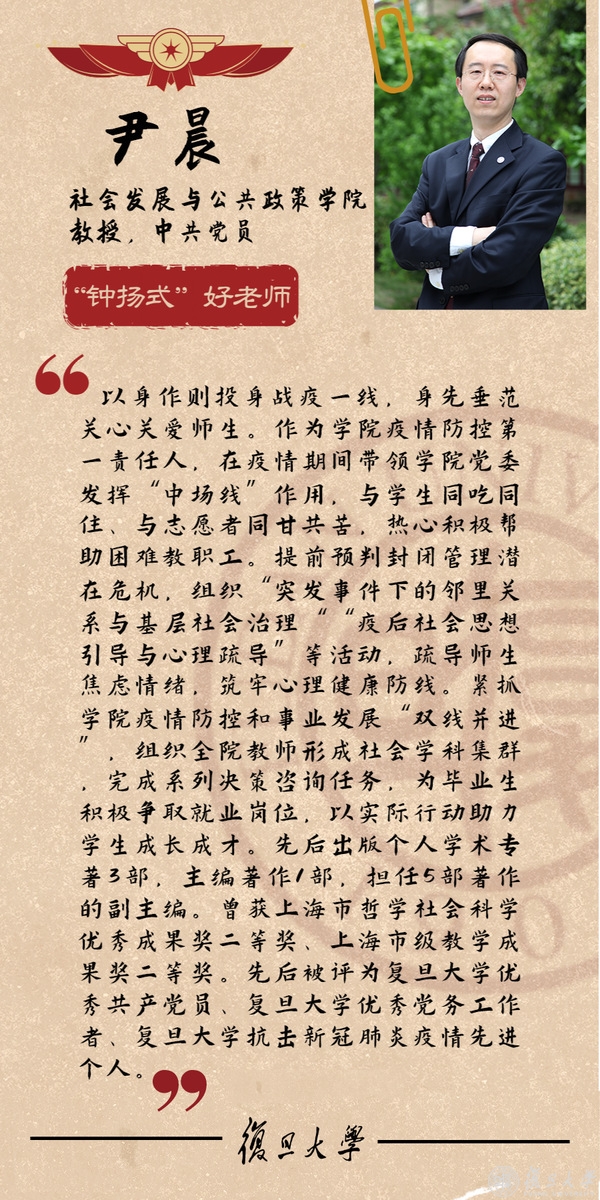 尹晨
社会发展与公共政策学院
教授，中共党员
“钟扬式”好老师
“
以身作则投身战疫一线，身先垂范
关心关爱师生。作为学院疫情防控第
一责任人，在疫情期间带领学院党委
发挥“中场线”作用，与学生同吃同
住、与志愿者同甘共苦，热心积极帮
助困难教职工。提前预判封闭管理潜
在危机，组织“突发事件下的邻里关
系与基层社会治理““疫后社会思想
引导与心理疏导”等活动，疏导师生
焦虑情绪，筑牢心理健康防线。紧抓
学院疫情防控和事业发展“双线并进
”，组织全院教师形成社会学科集群
，完成系列决策咨询任务，为毕业生
积极争取就业岗位，以实际行动助力
学生成长成才。先后出版个人学术专
著3部，主编著作1部，担任5部著作
的副主编。曾获上海市哲学社会科学
优秀成果奖二等奖、上海市级教学成
果奖二等奖。先后被评为复旦大学优
秀共产党员、复旦大学优秀党务工作
者、复旦大学抗击新冠肺炎疫情先进
个人。
”
復旦大學